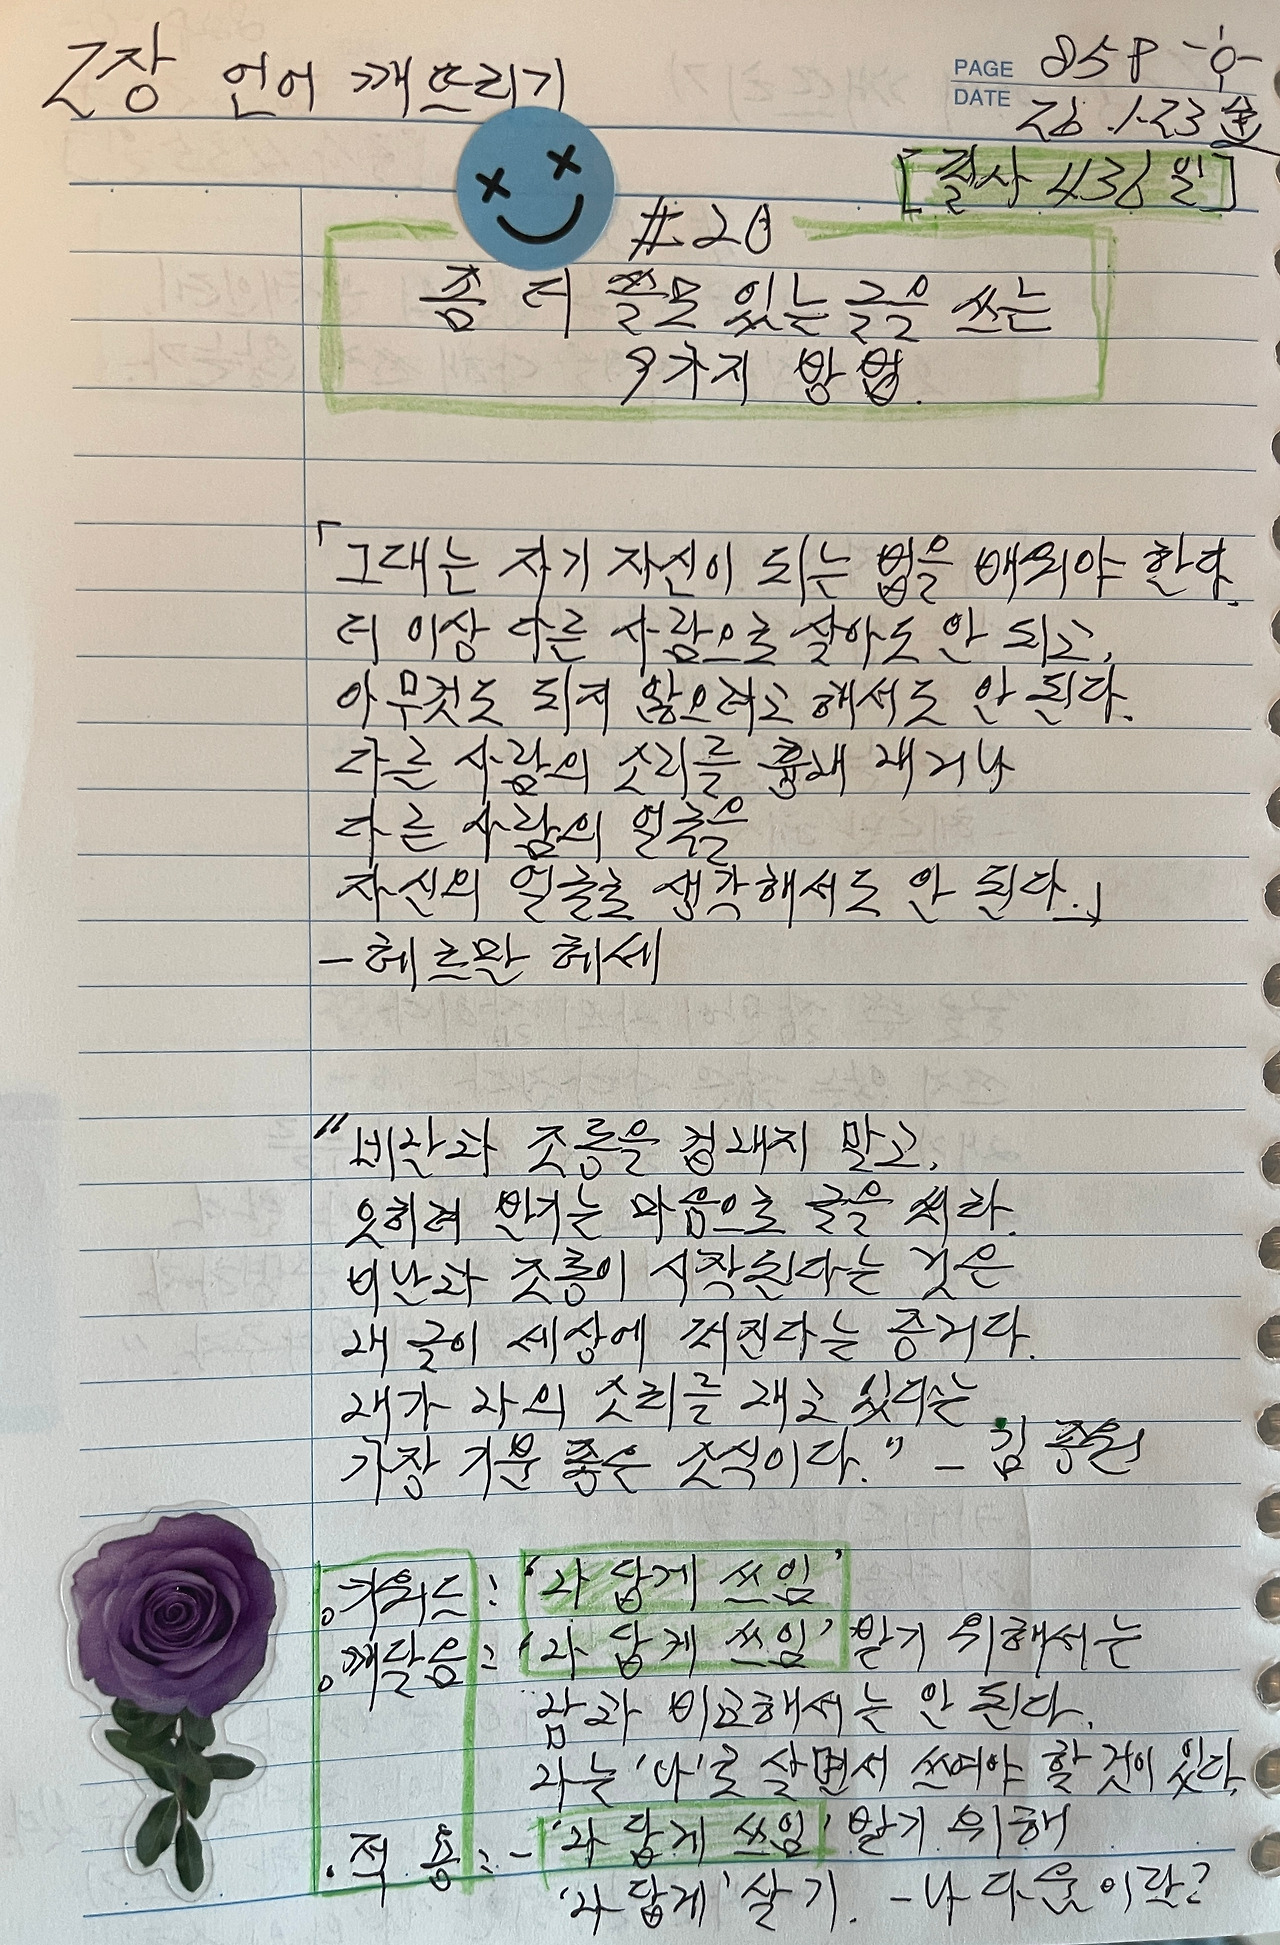 2장 언어 깨뜨리기
PAGE 85P
DATE 26.1.23 金
[필사 436일]
#28
좀 더 쓸모 있는 글을 쓰는
9가지 방법.
「그대는 자기 자신이 되는 법을 배워야 한다.
더 이상 다른 사람으로 살아도 안 되고,
아무것도 되지 않으려고 해서도 안 된다.
다른 사람의 소리를 흉내 내거나
다른 사람의 얼굴을
자신의 얼굴로 생각해서도 안 된다.」
-헤르만 헤세
"비난과 조롱을 겁내지 말고,
오히려 반기는 마음으로 글을 써라.
비난과 조롱이 시작된다는 것은
내 글이 세상에 퍼진다는 증거다.
내가 나의 소리를 내고 있다는
가장 기분 좋은 소식이다." - 김종원
.키워드: '나 답게 쓰임'
.깨달음: '나 답게 쓰임' 받기 위해서는
남과 비교해서는 안 된다.
나는 '나'로 살면서 쓰여야 할 것이 있다.
.적용: - '나 답게 쓰임' 받기 위해
'나 답게' 살기. -나 다움이란?